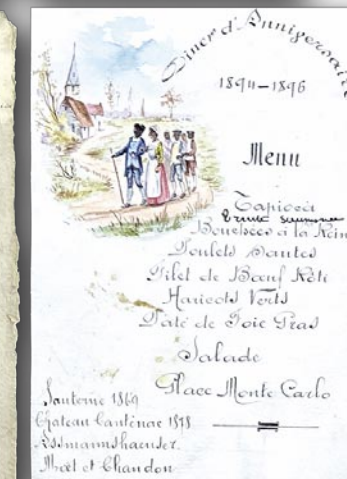 Diner d'Anniversaire
1894–1896
Menu
Tapioca
Bouchées à la Rein
Poulets Sautes
Filet de Bœuf Rôti
Haricots Verts
Pâté de Foie Gras
Salade
Glace Monte Carlo
Sauterne 1869
Chateau Cantenac 1878
Assmannshaeuser.
Moët et Chandon